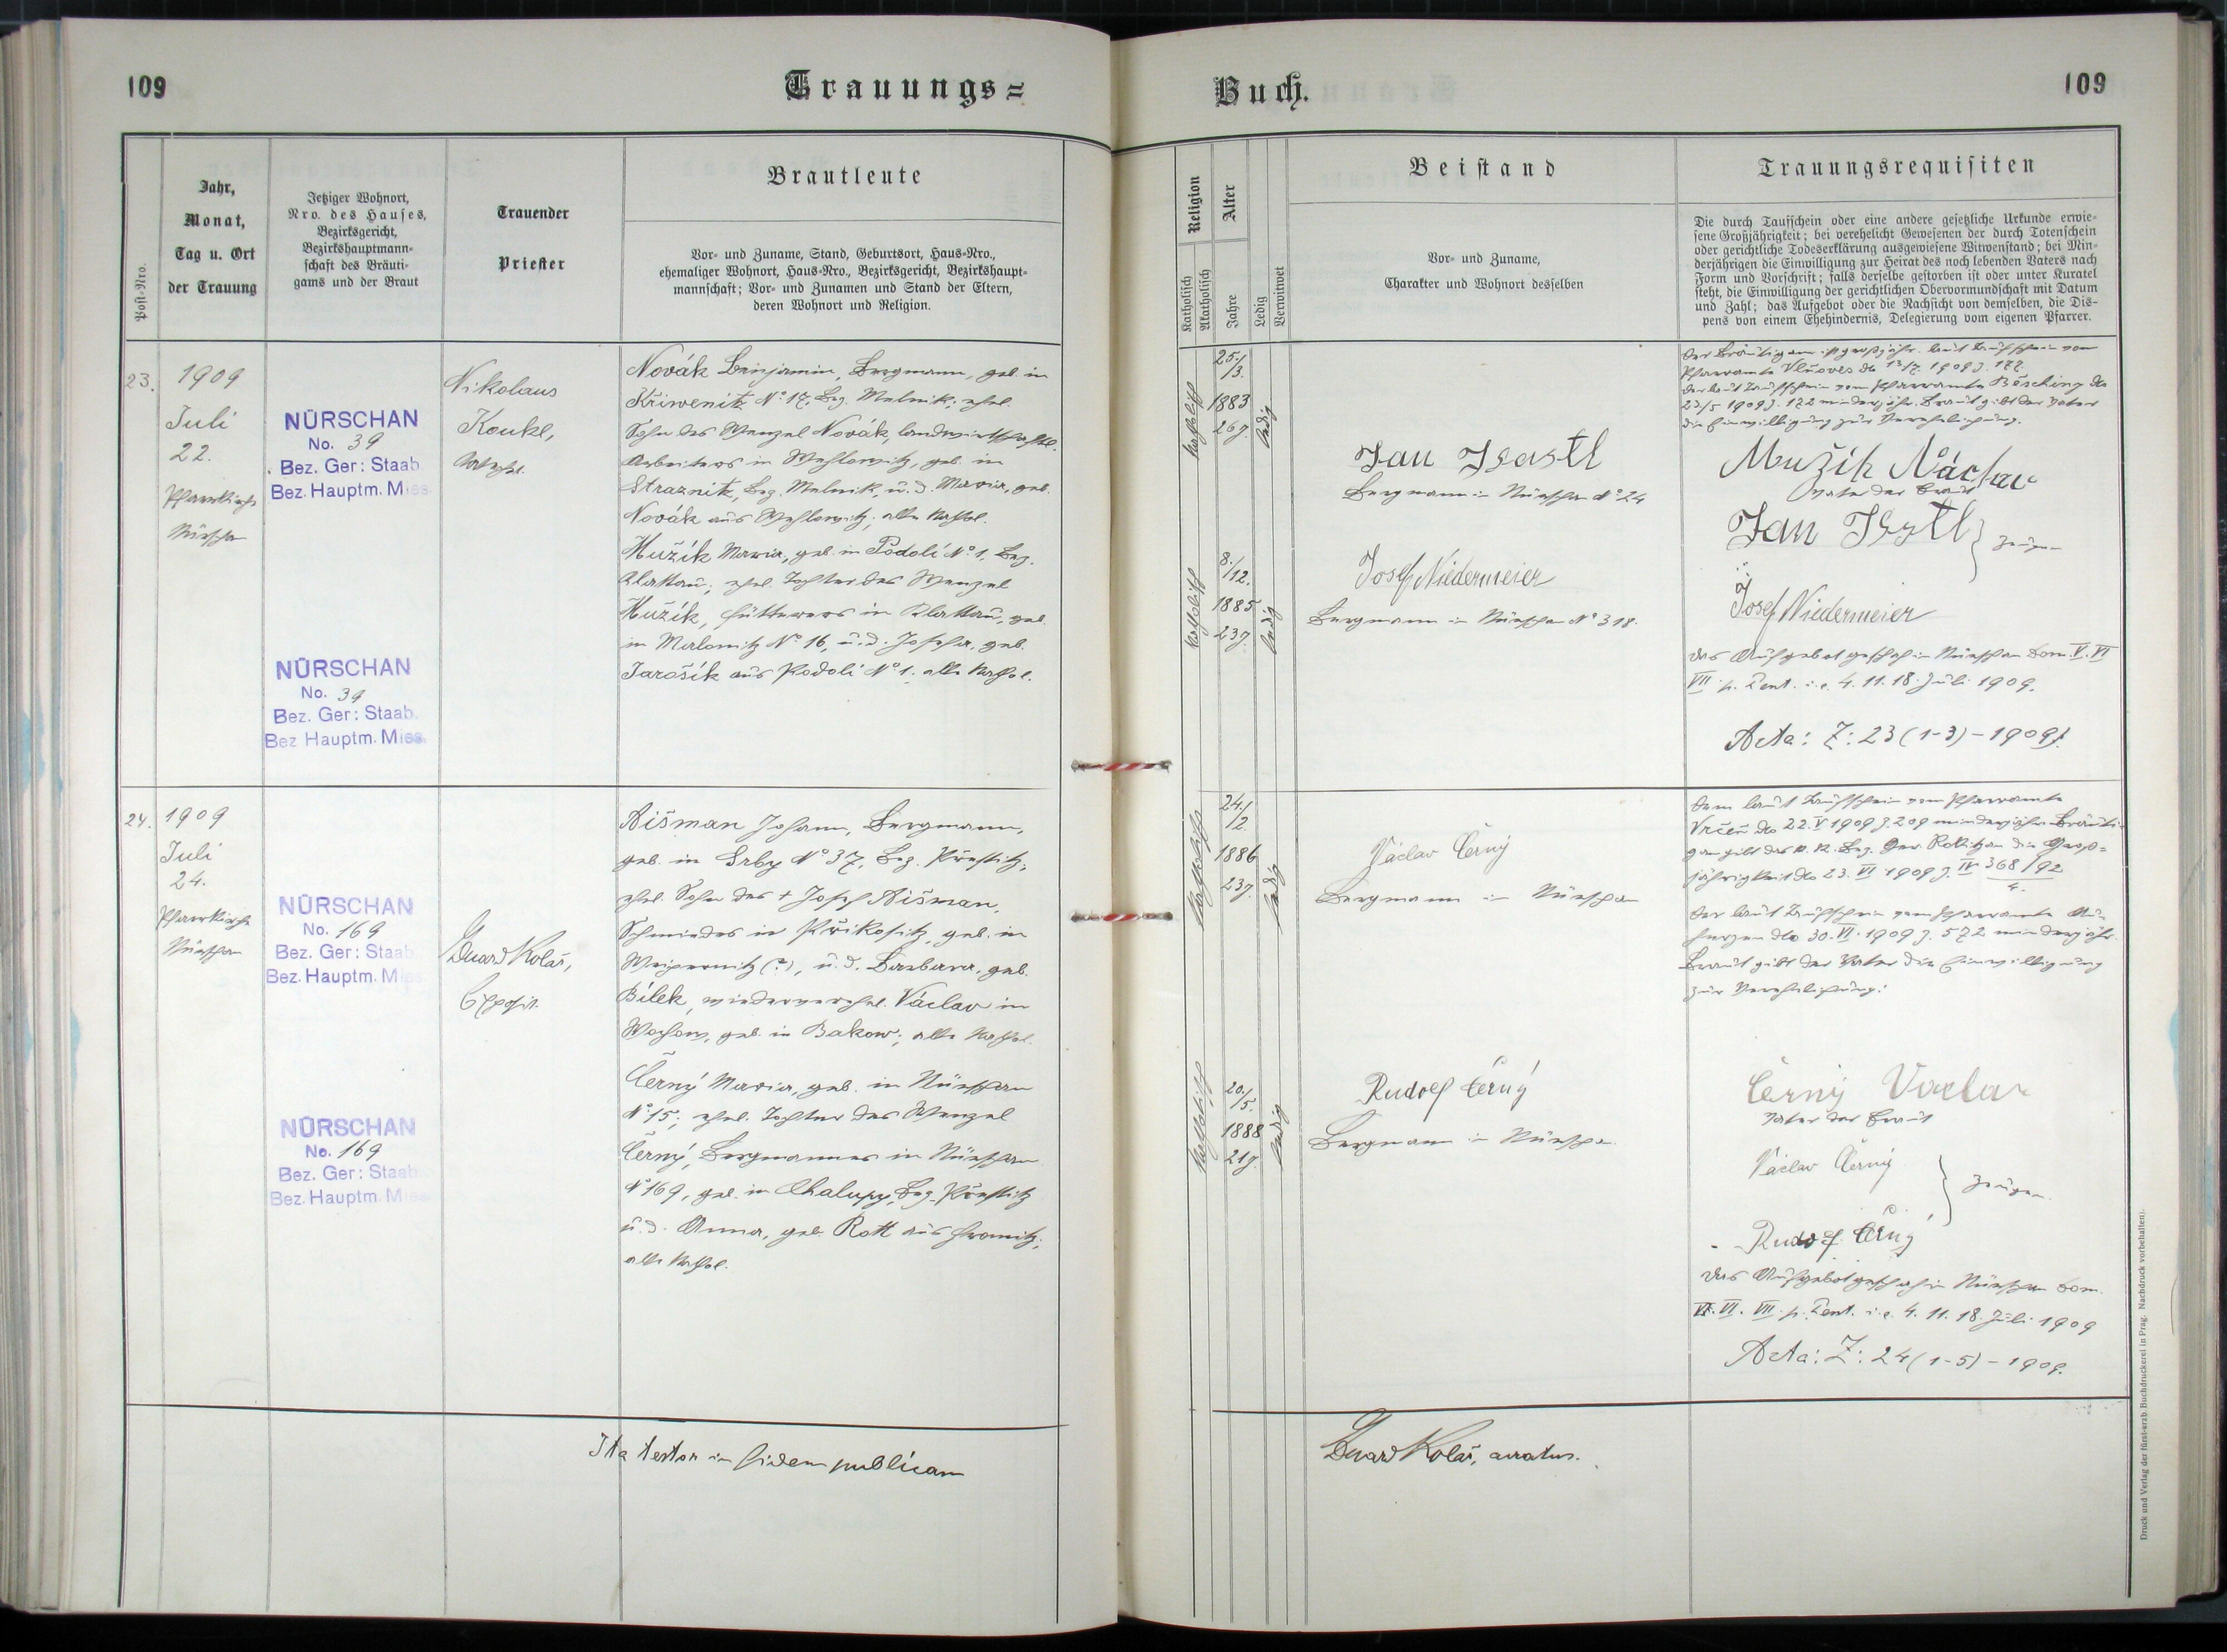 109
Trauungs=
Buch.
109
Post=Nro.
Jahr,
Monat,
Tag u. Ort
der Trauung
Jetziger Wohnort,
Nro. des Hauses,
Bezirksgericht,
Bezirkshauptmann=
schaft des Bräuti=
gams und der Braut
Trauender
Priester
Brautleute
Vor= und Zuname, Stand, Geburtsort, Haus=Nro.,
ehemaliger Wohnort, Haus=Nro., Bezirksgericht, Bezirkshaupt=
mannschaft; Vor= und Zunamen und Stand der Eltern,
deren Wohnort und Religion.
Religion
Katholisch
Akatholisch
Alter
Jahre
Ledig
Verwitwet
Beistand
Vor= und Zuname,
Charakter und Wohnort desselben
Trauungsrequisiten
Die durch Taufschein oder eine andere gesetzliche Urkunde erwie=
sene Großjährigkeit; bei verehelicht Gewesenen der durch Totenschein
oder gerichtliche Todeserklärung ausgewiesene Witwenstand; bei Min=
derjährigen die Einwilligung zur Heirat des noch lebenden Vaters nach
Form und Vorschrift; falls derselbe gestorben ist oder unter Kuratel
steht, die Einwilligung der gerichtlichen Obervormundschaft mit Datum
und Zahl; das Aufgebot oder die Nachsicht von demselben, die Dis=
pens von einem Ehehindernis, Delegierung vom eigenen Pfarrer.
23.
1909
Juli
22.
Pfarrkirche
Nürschan
NÜRSCHAN
No. 39
Bez. Ger: Staab.
Bez. Hauptm. Mies.
NÜRSCHAN
No. 39
Bez. Ger: Staab.
Bez Hauptm. Mies.
Nikolaus
Koukl,
Novák Benjamin, Bergmann, geb. in
Křiwenitz No 17, Bez. Melnik; ehel.
Sohn des Wenzel Novák, landwirtschaftl.
Arbeiters in Wehlowitz, geb. in
Straznitz, Bez. Melnik, u. d. Maria, geb.
Novák aus Wehlowitz; alle kathol.
Mužík Maria, geb. in Podolí No 1, Bez.
Klattau; ehel. Tochter des Wenzel
Mužík, Hüttners in Klattau, geb.
in Malonitz No 16, u. d. Josefa, geb.
Jarošík aus Podoli No 1. alle kathol.
katholisch
25./
/3.
1883
26 J.
ledig
katholisch
8./
/12.
1885
23 J.
ledig
Jan
Bergmann in Nürschan No 24
Josef Niedermeier
Bergmann in Nürschan No 318.
Der Bräutigam ist großjähr. laut Taufschein vom
Pfarramte do 13/7 1909 J. 177.
Der laut Taufschein vom Pfarramte Běschiny do
23/5 1909 J. 172 minderjähr. Braut gibt der Vater
die Einwilligung zur Verehelichung.
Mužík Václav
Vater der Braut
Jan
Zeugen
Josef Niedermeier
Das Aufgebot geschah in Nürschan Dom. V. VI
VII p. Pent. i. e. 4. 11. 18. Juli 1909.
Acta: Z: 23 (1-3) - 1909.
24.
1909
Juli
24.
Pfarrkirche
Nürschan
NÜRSCHAN
No. 169
Bez. Ger: Staab
Bez. Hauptm. Mies
NÜRSCHAN
No. 169
Bez. Ger: Staab
Bez. Hauptm. Mies
Eduard Kolář,
Exposit.
Aišman Johann, Bergmann,
geb. in Srby No 37, Bez. Přestitz,
ehel. Sohn des + Josef Aišman,
Schmiedes in Přikositz, geb. in
Weipernitz (?), u. d. Barbara, geb.
Bílek, wiederverehel. Václav in
geb. in Bakow; alle kathol.
Černý Maria, geb. in Nürschan
No 15; ehel. Tochter des Wenzel
Černý, Bergmannes in Nürschan
No 169, geb. in Chalupy, Bez. Přestitz
u. d. Anna, geb. Rott aus
alle kathol.
katholisch
24./
/2.
1886
23 J.
ledig
katholisch
20./
/5.
1888
21 J.
ledig
Václav Černý
Bergmann in Nürschan
Rudolf Černý
Bergmann in Nürschan.
Dem laut Taufschein vom Pfarramte
Vrčeň do 22. V 1909 J. 209 minderjähr. Bräuti=
gam gibt das k. k. Bez. Ger. Rokitzan die Groß=
jährigkeit do 23. VI 1909 J. IV 368/92
4.
Der laut Taufschein vom Pfarramte
do 30. VI. 1909 J. 572 minderjähr.
Braut gibt der Vater die Einwilligung
zur Verehelichung:
Černý Vaclav
Vater der Braut
Václav Černý
Zeugen.
Rudolf Černý
Das Aufgebot geschah in Nürschan Dom.
V. VI. VII p. Pent. i. e. 4. 11. 18. Juli 1909
Acta: Z: 24 (1-5) - 1909.
Ita testor in fidem publicam
Eduard Kolář, curatus.
Druck und Verlag der fürst-erzb. Buchdruckerei in Prag. Nachdruck vorbehalten).